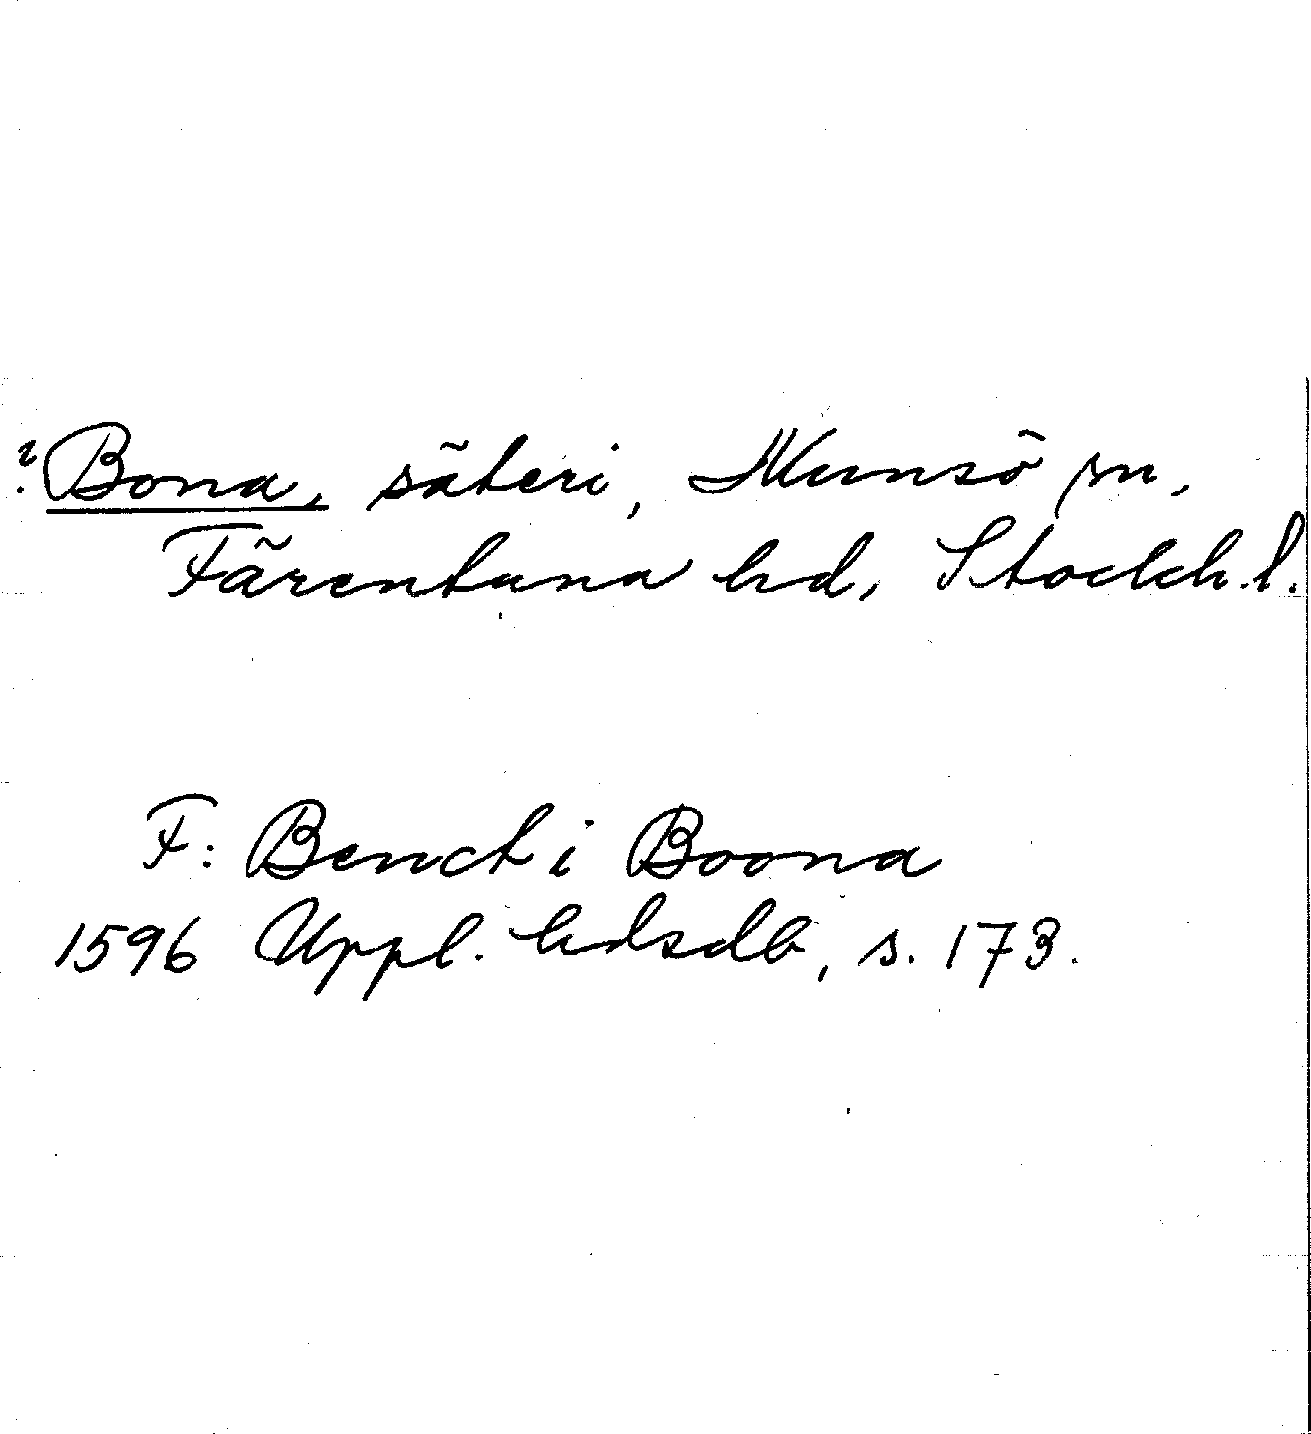 ? Bona, säteri, Munsö sn,
Färentuna hd, Stockh.l.
F: Benct i Boona
1596 Uppl. hdsdb, s. 173.